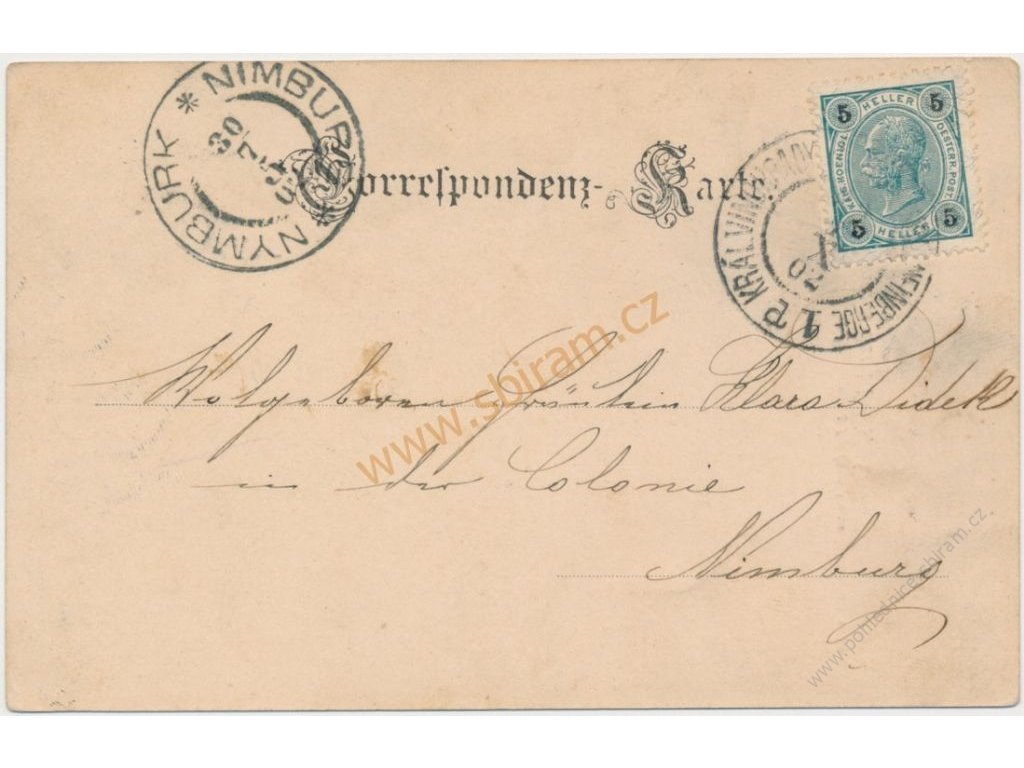 NIMBURG * NYMBURK *
30
Correspondenz-Karte
5 HELLER 5
KAIS. KOEN. IGL. OESTERR. POST.
5 HELLER 5
KRÁL. VINOHRADY 1
WEINBERGE
02
Wolgeboren Fräulein Klara Didek
in der Colonie
Nimburg
www.sbiram.cz
www.pohlednice.sbiram.cz